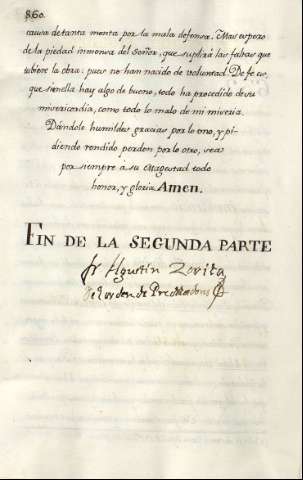 860.
causa de tanta menta por la mala defensa. Mas espero
de la piedad inmensa del Señor, que suplirá las faltas que
tubiere la obra: pues no han nacido de voluntad. De fe es,
que si en ella hay algo de bueno, todo ha procedido de su
misericordia, como todo lo malo de mi miseria.
Dándole humildes gracias por lo uno, y pi-
diendo rendido perdon por lo otro, sea
por siempre à su Magestad todo
honor, y gloria Amen.
FIN DE LA SEGUNDA PARTE
fr Agustin Zorita
del orden de Predicadores